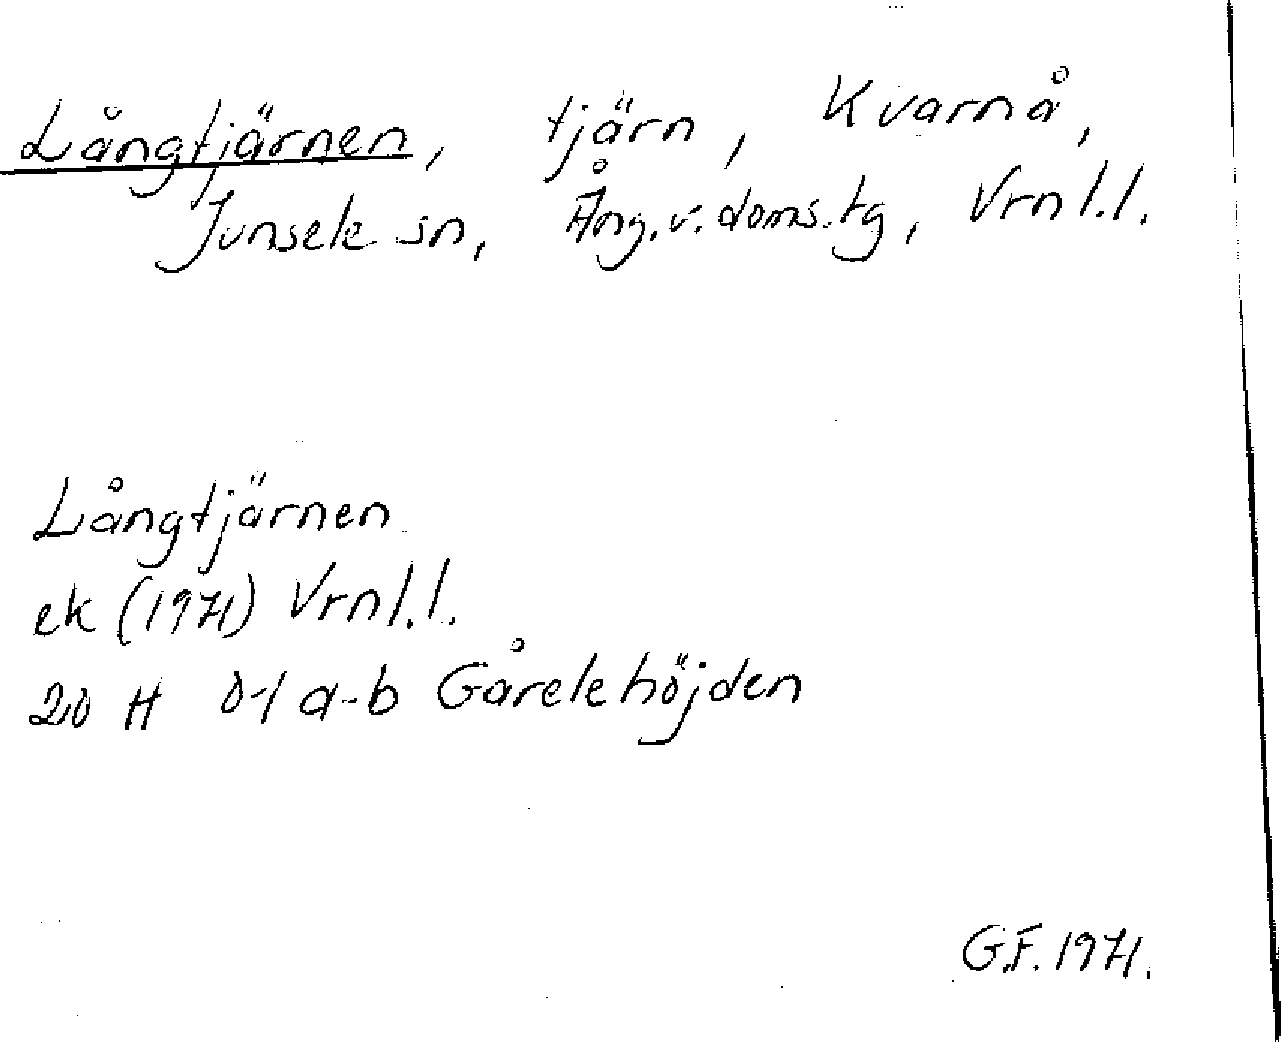 Långtjärnen, tjärn, Kvarnå,
Junsele sn, Ång. v. doms. tg, Vrnl.l.
Långtjärnen
ek (1971) Vrnl.l.
20 H 0-1 a-b Gårelehöjden
G.F. 1971.